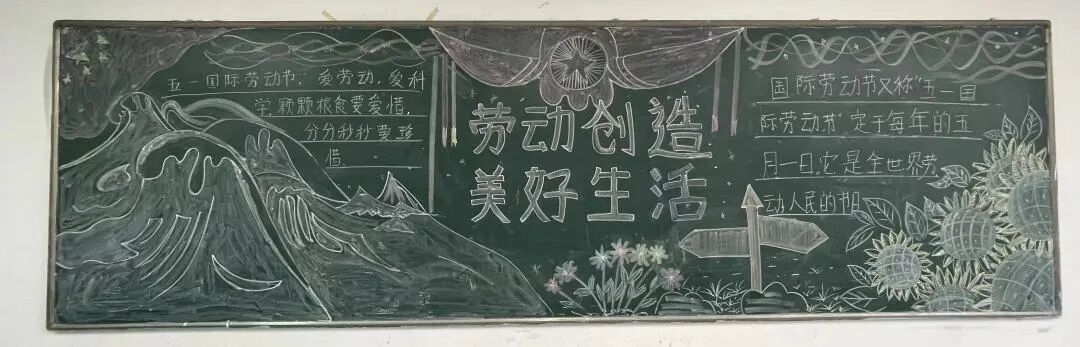 五一国际劳动节:爱劳动,爱科
学,颗颗粮食要爱惜,
分分秒秒要珍
惜
劳动创造
美好生活
国际劳动节又称"五一国
际劳动节"定于每年的五
月一日。它是全世界劳
动人民的节日